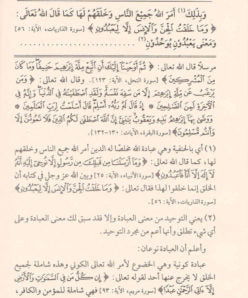 وَبِذَلِكَ(١) أَمَرَ اللهُ جَمِيعَ النَّاسِ وَخَلَقَهُمْ لَهَا كَمَا قَالَ اللهُ تَعَالَى:
﴿ وَمَا خَلَقْتُ الْجِنَّ وَالْإِنسَ إِلَّا لِيَعْبُدُونِ ﴾ [سورة الذاريات، الآية: ٥٦]
وَمَعْنَى يَعْبُدُونِ يُوَحِّدُونِ(٢)
قال الله تعالى: ﴿ ثُمَّ أَوْحَيْنَا إِلَيْكَ أَنِ اتَّبِعْ مِلَّةَ إِبْرَاهِيمَ حَنِيفًا وَمَا كَانَ
مِنَ الْمُشْرِكِينَ ﴾ [سورة النحل، الآية: ١٢٣]. وقال الله تعالى: ﴿ وَمَن
يَرْغَبُ عَن مِّلَّةِ إِبْرَاهِيمَ إِلَّا مَن سَفِهَ نَفْسَهُ وَلَقَدِ اصْطَفَيْنَاهُ فِي الدُّنْيَا وَإِنَّهُ فِي
الْآخِرَةِ لَمِنَ الصَّالِحِينَ * إِذْ قَالَ لَهُ رَبُّهُ أَسْلِمْ قَالَ أَسْلَمْتُ لِرَبِّ الْعَالَمِينَ *
وَوَصَّى بِهَا إِبْرَاهِيمُ بَنِيهِ وَيَعْقُوبُ يَا بَنِيَّ إِنَّ اللَّهَ اصْطَفَى لَكُمُ الدِّينَ فَلَا تَمُوتُنَّ إِلَّا
وَأَنتُم مُّسْلِمُونَ ﴾ [سورة البقرة، الآيات: ١٣٠-١٣٢]
(١) أي بالحنيفية وهي عبادة الله مخلصًا له الدين أمر الله جميع الناس وخلقهم
لها، كما قال الله تعالى: ﴿ وَمَا أَرْسَلْنَا مِن قَبْلِكَ مِن رَّسُولٍ إِلَّا نُوحِي إِلَيْهِ أَنَّهُ
لَا إِلَهَ إِلَّا أَنَا فَاعْبُدُونِ ﴾ [سورة الأنبياء، الآية: ٢٥] وبين الله عز وجل في كتابه أن
الخلق إنما خلقوا لهذا فقال تعالى: ﴿ وَمَا خَلَقْتُ الْجِنَّ وَالْإِنسَ إِلَّا لِيَعْبُدُونِ ﴾
[سورة الذاريات، الآية: ٥٦].
(٢) يعني التوحيد من معنى العبادة وإلا فقد سبق لك معنى العبادة وعلى
أي شيء تطلق وأنها أعم من مجرد التوحيد.
وأعلم أن العبادة نوعان:
عبادة كونية وهي الخضوع لأمر الله تعالى الكوني وهذه شاملة لجميع
الخلق لا يخرج عنها أحد لقوله تعالى: ﴿ إِن كُلُّ مَن فِي السَّمَاوَاتِ وَالْأَرْضِ
إِلَّا آتِي الرَّحْمَنِ عَبْدًا ﴾ [سورة مريم، الآية: ٩٣] فهي شاملة للمؤمن والكافر،